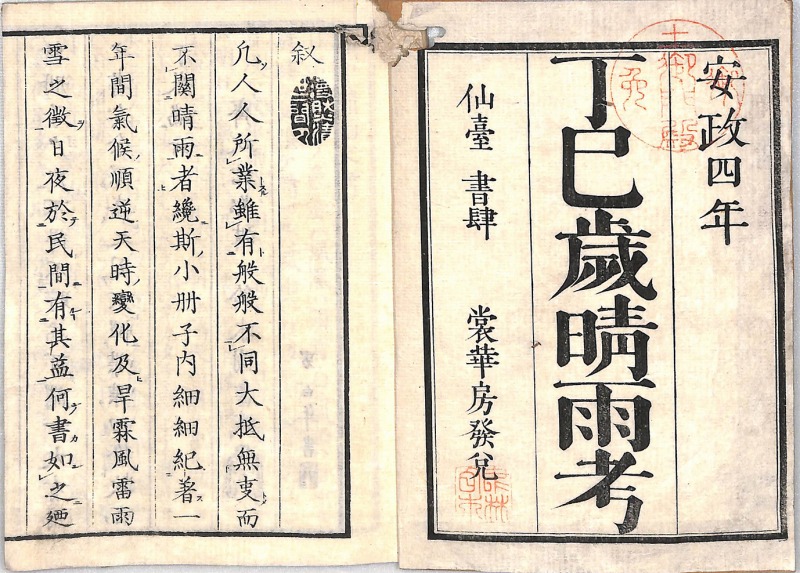 安政四年
丁巳歳晴雨考
仙臺 書肆 裳華房發兌
叙
凢人人所業雖有般般不同大抵無叓而
不關晴雨者纔斯小册子内細細紀著一
年間氣候順逆天時變化及旱霖風雷雨
雪之徴日夜於民間有其益何書如之廼